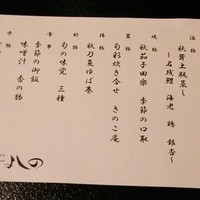 秋茸土瓶蒸し
〜名残鱧 海老 鶏 銀杏〜
焼物
秋茄子田楽 季節の口取
蓋物
旬彩炊き合せ きのこ庵
揚物
秋刀魚ゆば巻
彩物
旬の味覚 三種
食事
季節の御飯
味噌汁 香の物
水物
八の